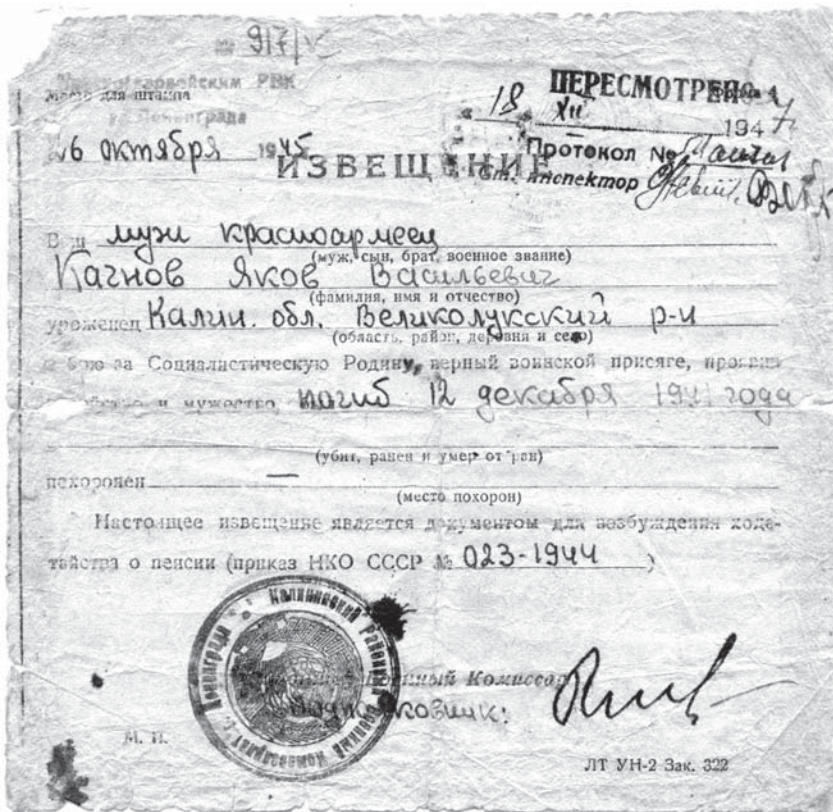 № 917/
РВК
Место для штампа
Ленинграда
26 октября 1945
ПЕРЕСМОТРЕНО
"18" XII 1947
Протокол №
Ст. инспектор
ИЗВЕЩЕНИЕ
Ваш муж красноармеец
(муж, сын, брат, военное звание)
Качнов Яков Васильевич
(фамилия, имя и отчество)
уроженец Калин. обл. Великолукский р-н
(область, район, деревня и село)
в бою за Социалистическую Родину, верный воинской присяге, проявив
и мужество, погиб 12 декабря 1941 года
(убит, ранен и умер от ран)
похоронен —
(место похорон)
Настоящее извещение является документом для возбуждения хода-
тайства о пенсии (приказ НКО СССР № 023-1944)
Калининский Районный Военный Комиссариат г. Ленинграда
Районный Военный Комиссар
Подполковник:
М. П.
ЛТ УН-2 Зак. 322